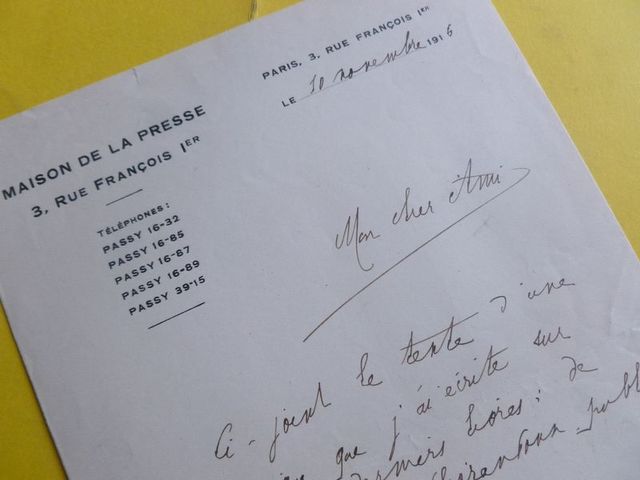 PARIS, 3, RUE FRANÇOIS IER
LE 10 novembre 1916
MAISON DE LA PRESSE
3, RUE FRANÇOIS IER
TÉLÉPHONES:
PASSY 16-32
PASSY 16-85
PASSY 16-87
PASSY 16-89
PASSY 39-15
Mon cher Ami
Ci-joint le texte d'une
que j'ai écrite sur
derniers livres: de